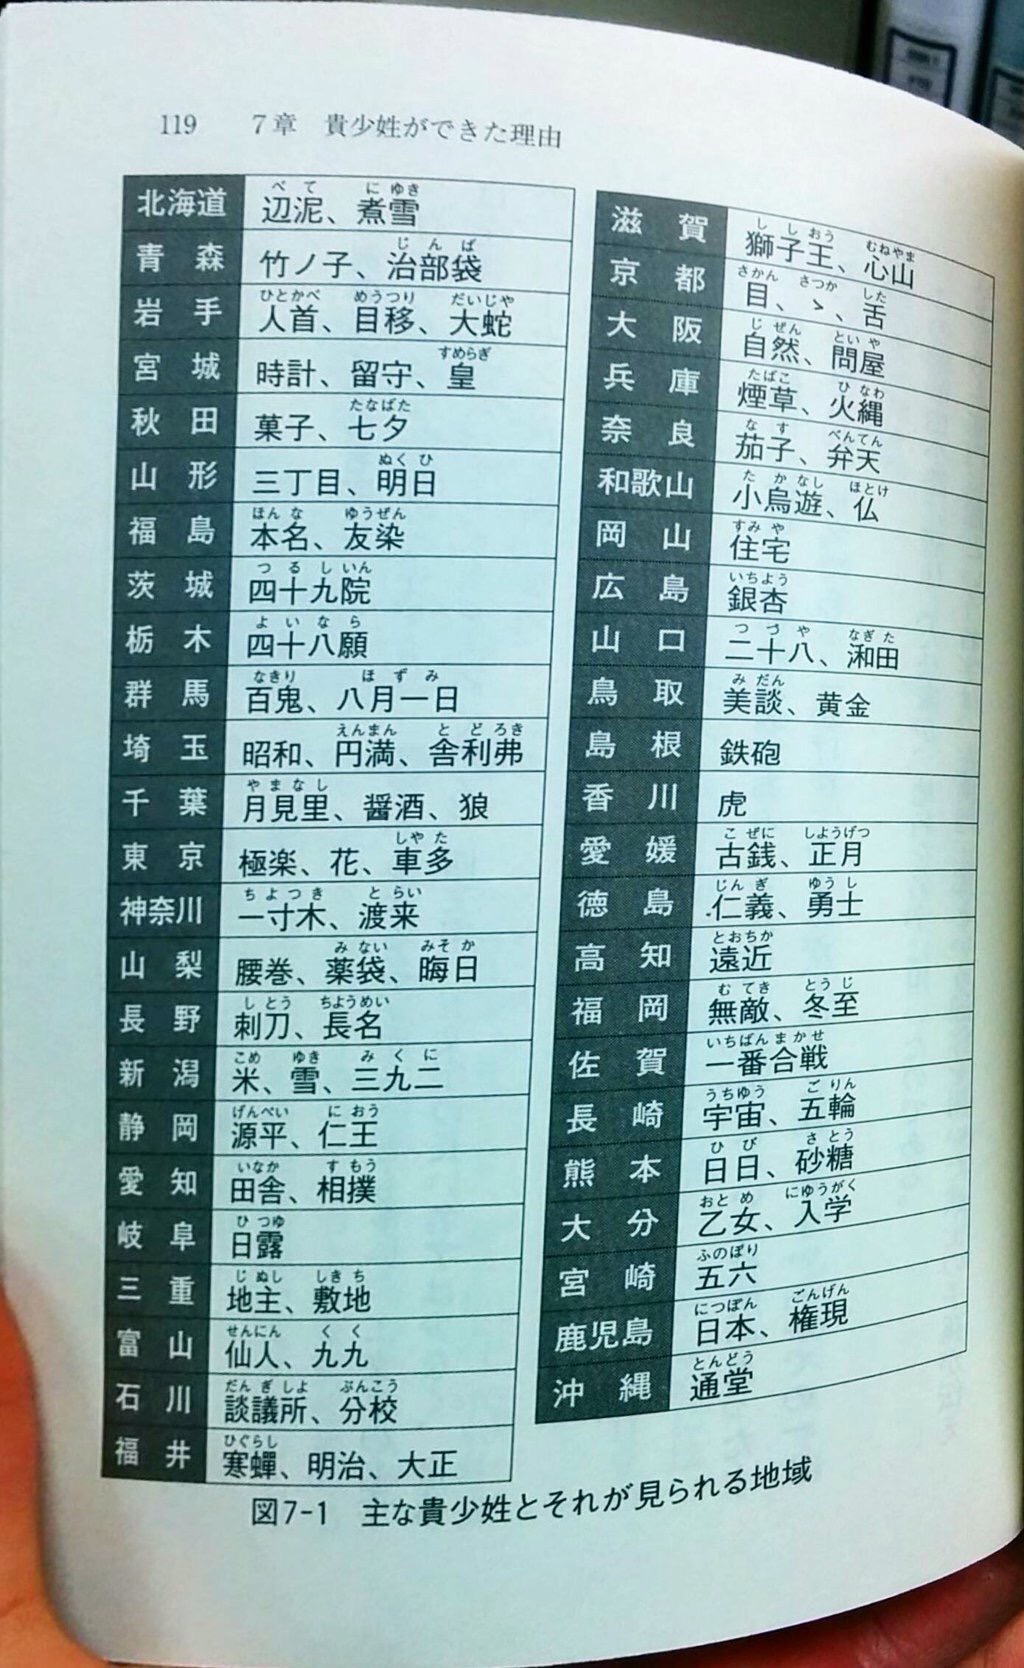 119　7章　貴少姓ができた理由
北海道　辺泥(べて)、煮雪(にゆき)
青森　竹ノ子、治部袋(じんば)
岩手　人首(ひとかべ)、目移(めうつり)、大蛇(だいじゃ)
宮城　時計、留守、皇(すめらぎ)
秋田　菓子、七夕(たなばた)
山形　三丁目、明日(ぬくひ)
福島　本名(ほんな)、友染(ゆうぜん)
茨城　四十九院(つるしいん)
栃木　四十八願(よいなら)
群馬　百鬼(なきり)、八月一日(ほずみ)
埼玉　昭和、円満(えんまん)、舎利弗(とどろき)
千葉　月見里(やまなし)、醤酒、狼
東京　極楽、花、車多(しやた)
神奈川　一寸木(ちよつき)、渡来(とらい)
山梨　腰巻、薬袋(みない)、晦日(みそか)
長野　刺刀(しとう)、長名(ちようめい)
新潟　米(こめ)、雪(ゆき)、三九二(みくに)
静岡　源平(げんぺい)、仁王(におう)
愛知　田舎(いなか)、相撲(すもう)
岐阜　日露(ひつゆ)
三重　地主(じぬし)、敷地(しきち)
富山　仙人(せんにん)、九九(くく)
石川　談議所(だんぎしよ)、分校(ぶんこう)
福井　寒蟬(ひぐらし)、明治、大正
滋賀　獅子王(ししおう)、心山(むねやま)
京都　目(さかん)、ゝ(さつか)、舌(した)
大阪　自然(じぜん)、問屋(といや)
兵庫　煙草(たばこ)、火縄(ひなわ)
奈良　茄子(なす)、弁天(べんてん)
和歌山　小鳥遊(たかなし)、仏(ほとけ)
岡山　住宅(すみや)
広島　銀杏(いちよう)
山口　二十八(つづや)、和田(なぎた)
鳥取　美談(みだん)、黄金
島根　鉄砲
香川　虎
愛媛　古銭(こぜに)、正月(しようげつ)
徳島　仁義(じんぎ)、勇士(ゆうし)
高知　遠近(とおちか)
福岡　無敵(むてき)、冬至(とうじ)
佐賀　一番合戦(いちばんまかせ)
長崎　宇宙(うちゆう)、五輪(ごりん)
熊本　日日(ひび)、砂糖(さとう)
大分　乙女(おとめ)、入学(にゆうがく)
宮崎　五六(ふのぼり)
鹿児島　日本(につぽん)、権現(ごんげん)
沖縄　通堂(とんどう)
図7-1　主な貴少姓とそれが見られる地域